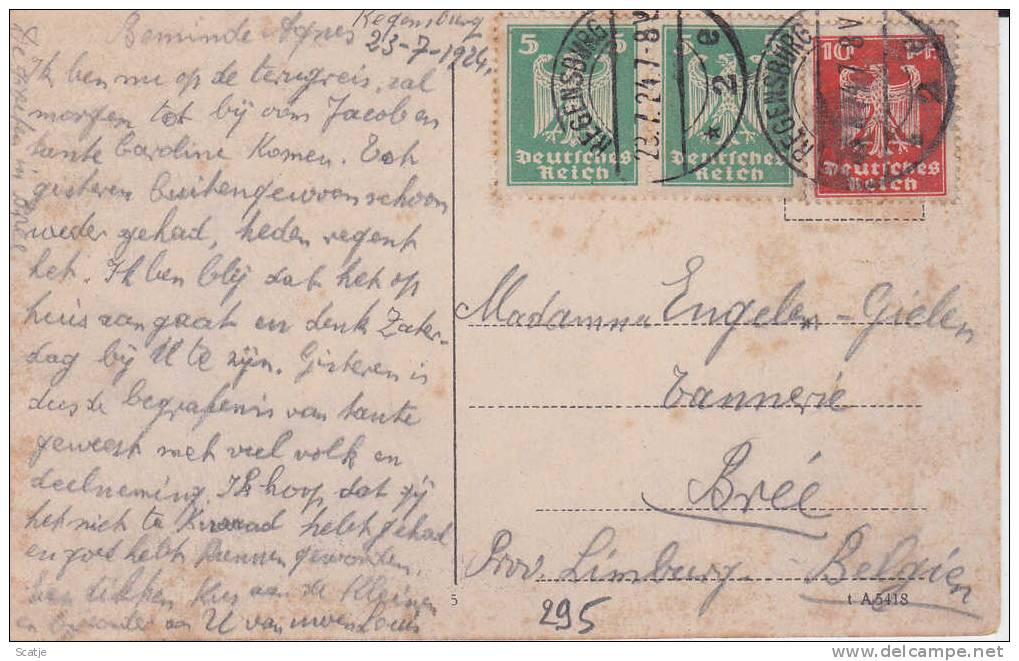 Regensburg
23-7-1924.
Beminde Agnes
Ik ben nu op de terugreis, zal
morgen tot bij oom Jacob en
tante Caroline Komen.
gisteren buitengewoon schoon
weder gehad, heden regent
het. Ik ben blij dat het op
huis aan gaat en denk Zater-
dag bij U te zijn. Gisteren is
dus de begrafenis van tante
geweest met veel volk en
deelneming. Ik hoop dat gij
het niet te hebt gehad
en goed hebt kunnen
Een dikken kus aan de Kleinen
en bezonder aan U van uwen Louis
5 5
Deutsches Reich
Deutsches Reich
10 Pf.
Deutsches Reich
REGENSBURG
23.7.24.7-8
e
2
REGENSBURG
2
Madamme Engelen-Gielen
Tannerie
Brée
Prov Limburg. Belgiën
5
295
t A 5418
Scatje